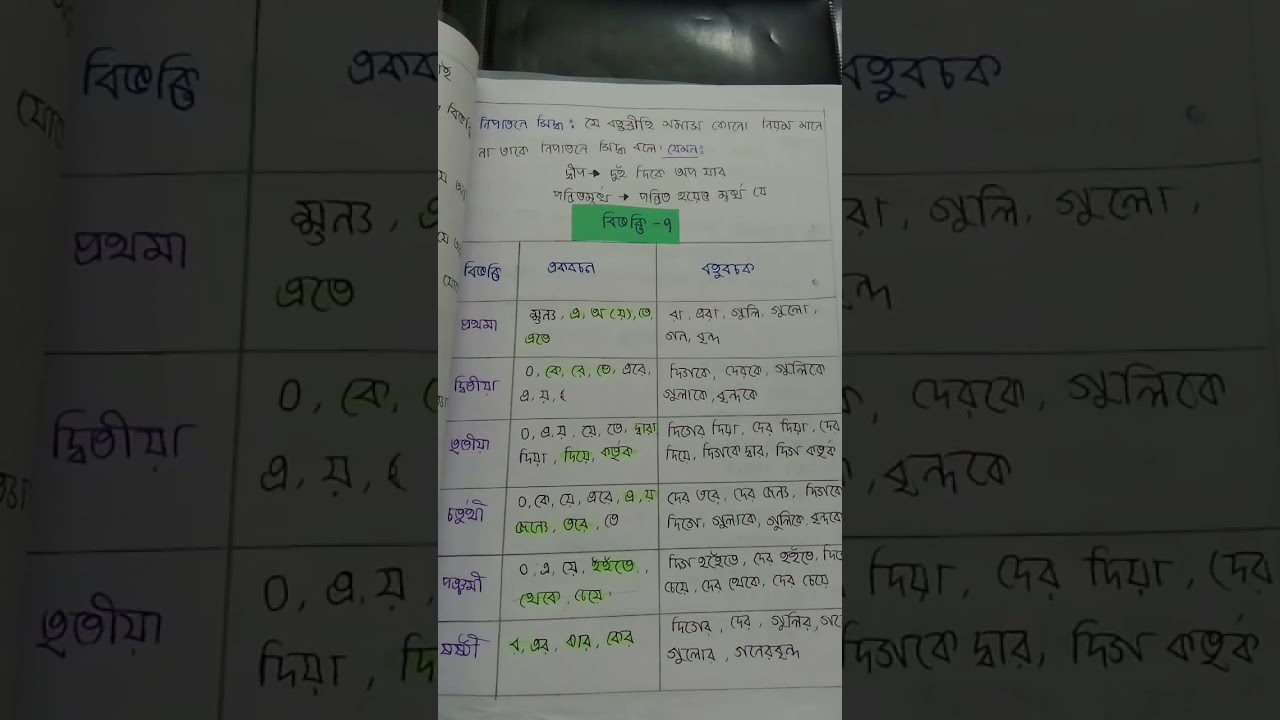 নিপাতনে সিদ্ধ : যে বহুব্রীহি সমাস কোনো নিয়ম মানে
না তাকে নিপাতনে সিদ্ধ বলে। যেমন:
দ্বীপ → দুই দিকে অপ যার
পন্ডিতমূর্খ → পন্ডিত হয়েও মূর্খ যে
বিভক্তি - ৭
বিভক্তি একবচন বহুবচক
প্রথমা শুন্য, এ, অ (য়), তে রা, এরা, গুলি, গুলো,
এতে গন, বৃন্দ
দ্বিতীয়া ০, কে, রে, তে, এরে, দিগকে, দেরকে, গুলিকে
এ, য়, গুলাকে, বৃন্দকে
তৃতীয়া ০, এ, য়, য়ে, তে, দ্বারা দিগের দিয়া, দের দিয়া, দের
দিয়া, দিয়ে, কর্তৃক দিয়ে, দিগকে দ্বার, দিগ কর্তৃক
চতুর্থী ০, কে, য়ে, এরে, এ, য় দের তরে, দের জন্য, দিগকে
জন্যে, তরে, তে দিগে, গুলাকে, গুলিকে, বৃন্দকে
পঞ্চমী ০, এ, য়ে, হইতে, দিগ হইতে, দের হইতে,
থেকে, চেয়ে চেয়ে, দের থেকে, দের চেয়ে
ষষ্ঠী র, এর, কার, কের দিগের, দের, গুলির,
গুলোর, গনেরবৃন্দ